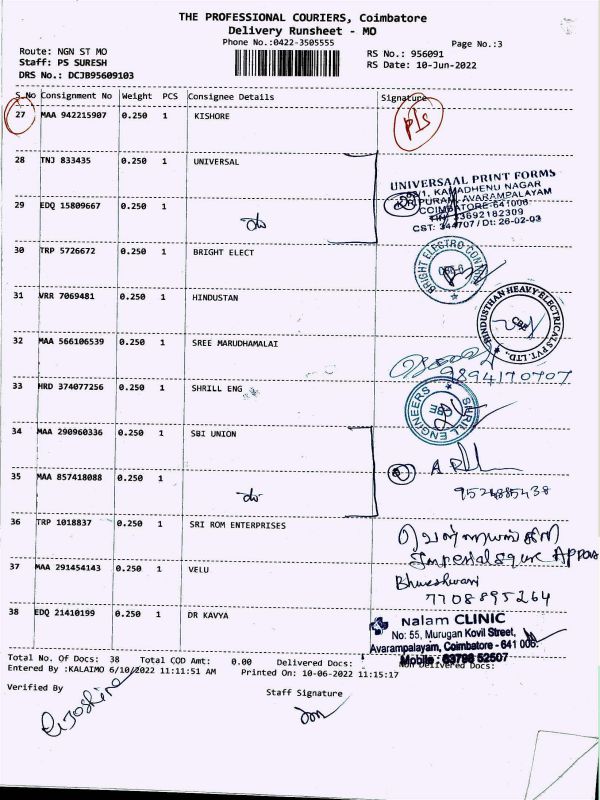 THE PROFESSIONAL COURIERS, Coimbatore
Delivery Runsheet - MO
Phone No.:0422-3505555
Page No.:3
Route: NGN ST MO
Staff: PS SURESH
DRS No.: DCJB95609103
RS No.: 956091
RS Date: 10-Jun-2022
S.No Consignment No Weight PCS Consignee Details Signature
27 MAA 942215907 0.250 1 KISHORE
28 TNJ 833435 0.250 1 UNIVERSAL
UNIVERSAAL PRINT FORMS
KAMADHENU NAGAR
PURAM, AVARAMPALAYAM
COIMBATORE-641006
33692182309
CST: 344707 / Dt: 26-02-03
29 EDQ 15809667 0.250 1
30 TRP 5726672 0.250 1 BRIGHT ELECT
BRIGHT ELECTRO CONTROL
31 VRR 7069481 0.250 1 HINDUSTAN
HINDUSTHAN HEAVY ELECTRICALS PVT. LTD.
32 MAA 566106539 0.250 1 SREE MARUDHAMALAI
9894170707
33 HRD 374077256 0.250 1 SHRILL ENG
SHRILL ENGINEERS
34 MAA 290960336 0.250 1 SBI UNION
35 MAA 857418088 0.250 1
9524885438
36 TRP 1018837 0.250 1 SRI ROM ENTERPRISES
37 MAA 291454143 0.250 1 VELU
Bhuveshwari
7708895264
38 EDQ 21410199 0.250 1 DR KAVYA
Nalam CLINIC
No: 55, Murugan Kovil Street,
Avarampalayam, Coimbatore - 641 006.
Mobile : 63798 52507
Total No. Of Docs: 38 Total COD Amt: 0.00 Delivered Docs:
Non Delivered Docs:
Entered By :KALAIMO 6/10/2022 11:11:51 AM Printed On: 10-06-2022 11:15:17
Verified By
Staff Signature